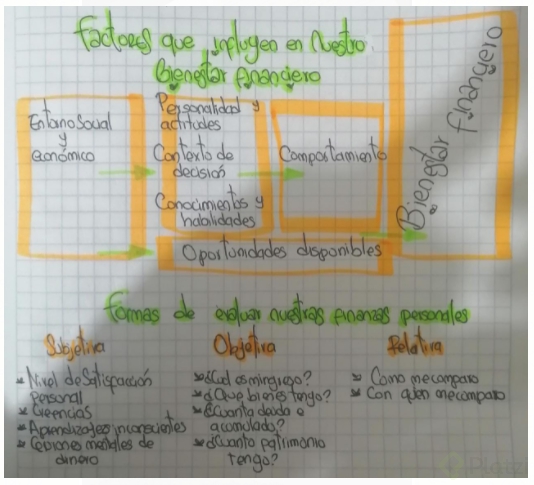 Factores que influyen en Nuestro
Bienestar financiero
Entorno Social
y
económico
Personalidad y
actitudes
Contexto de
decisión
Conocimientos y
habilidades
Comportamiento
Oportunidades disponibles
Bienestar Financiero
Formas de evaluar nuestras finanzas personales
Subjetiva
* Nivel de Satisfacción
personal
* Creencias
* Aprendizajes inconscientes
mentales de
dinero
Objetiva
* ¿Cuál es mi ingreso?
* ¿Que bienes tengo?
* ¿Cuanta deuda e
acumulado?
* ¿Cuanto patrimonio
tengo?
Relativa
* Como me comparo
* Con quien me comparo